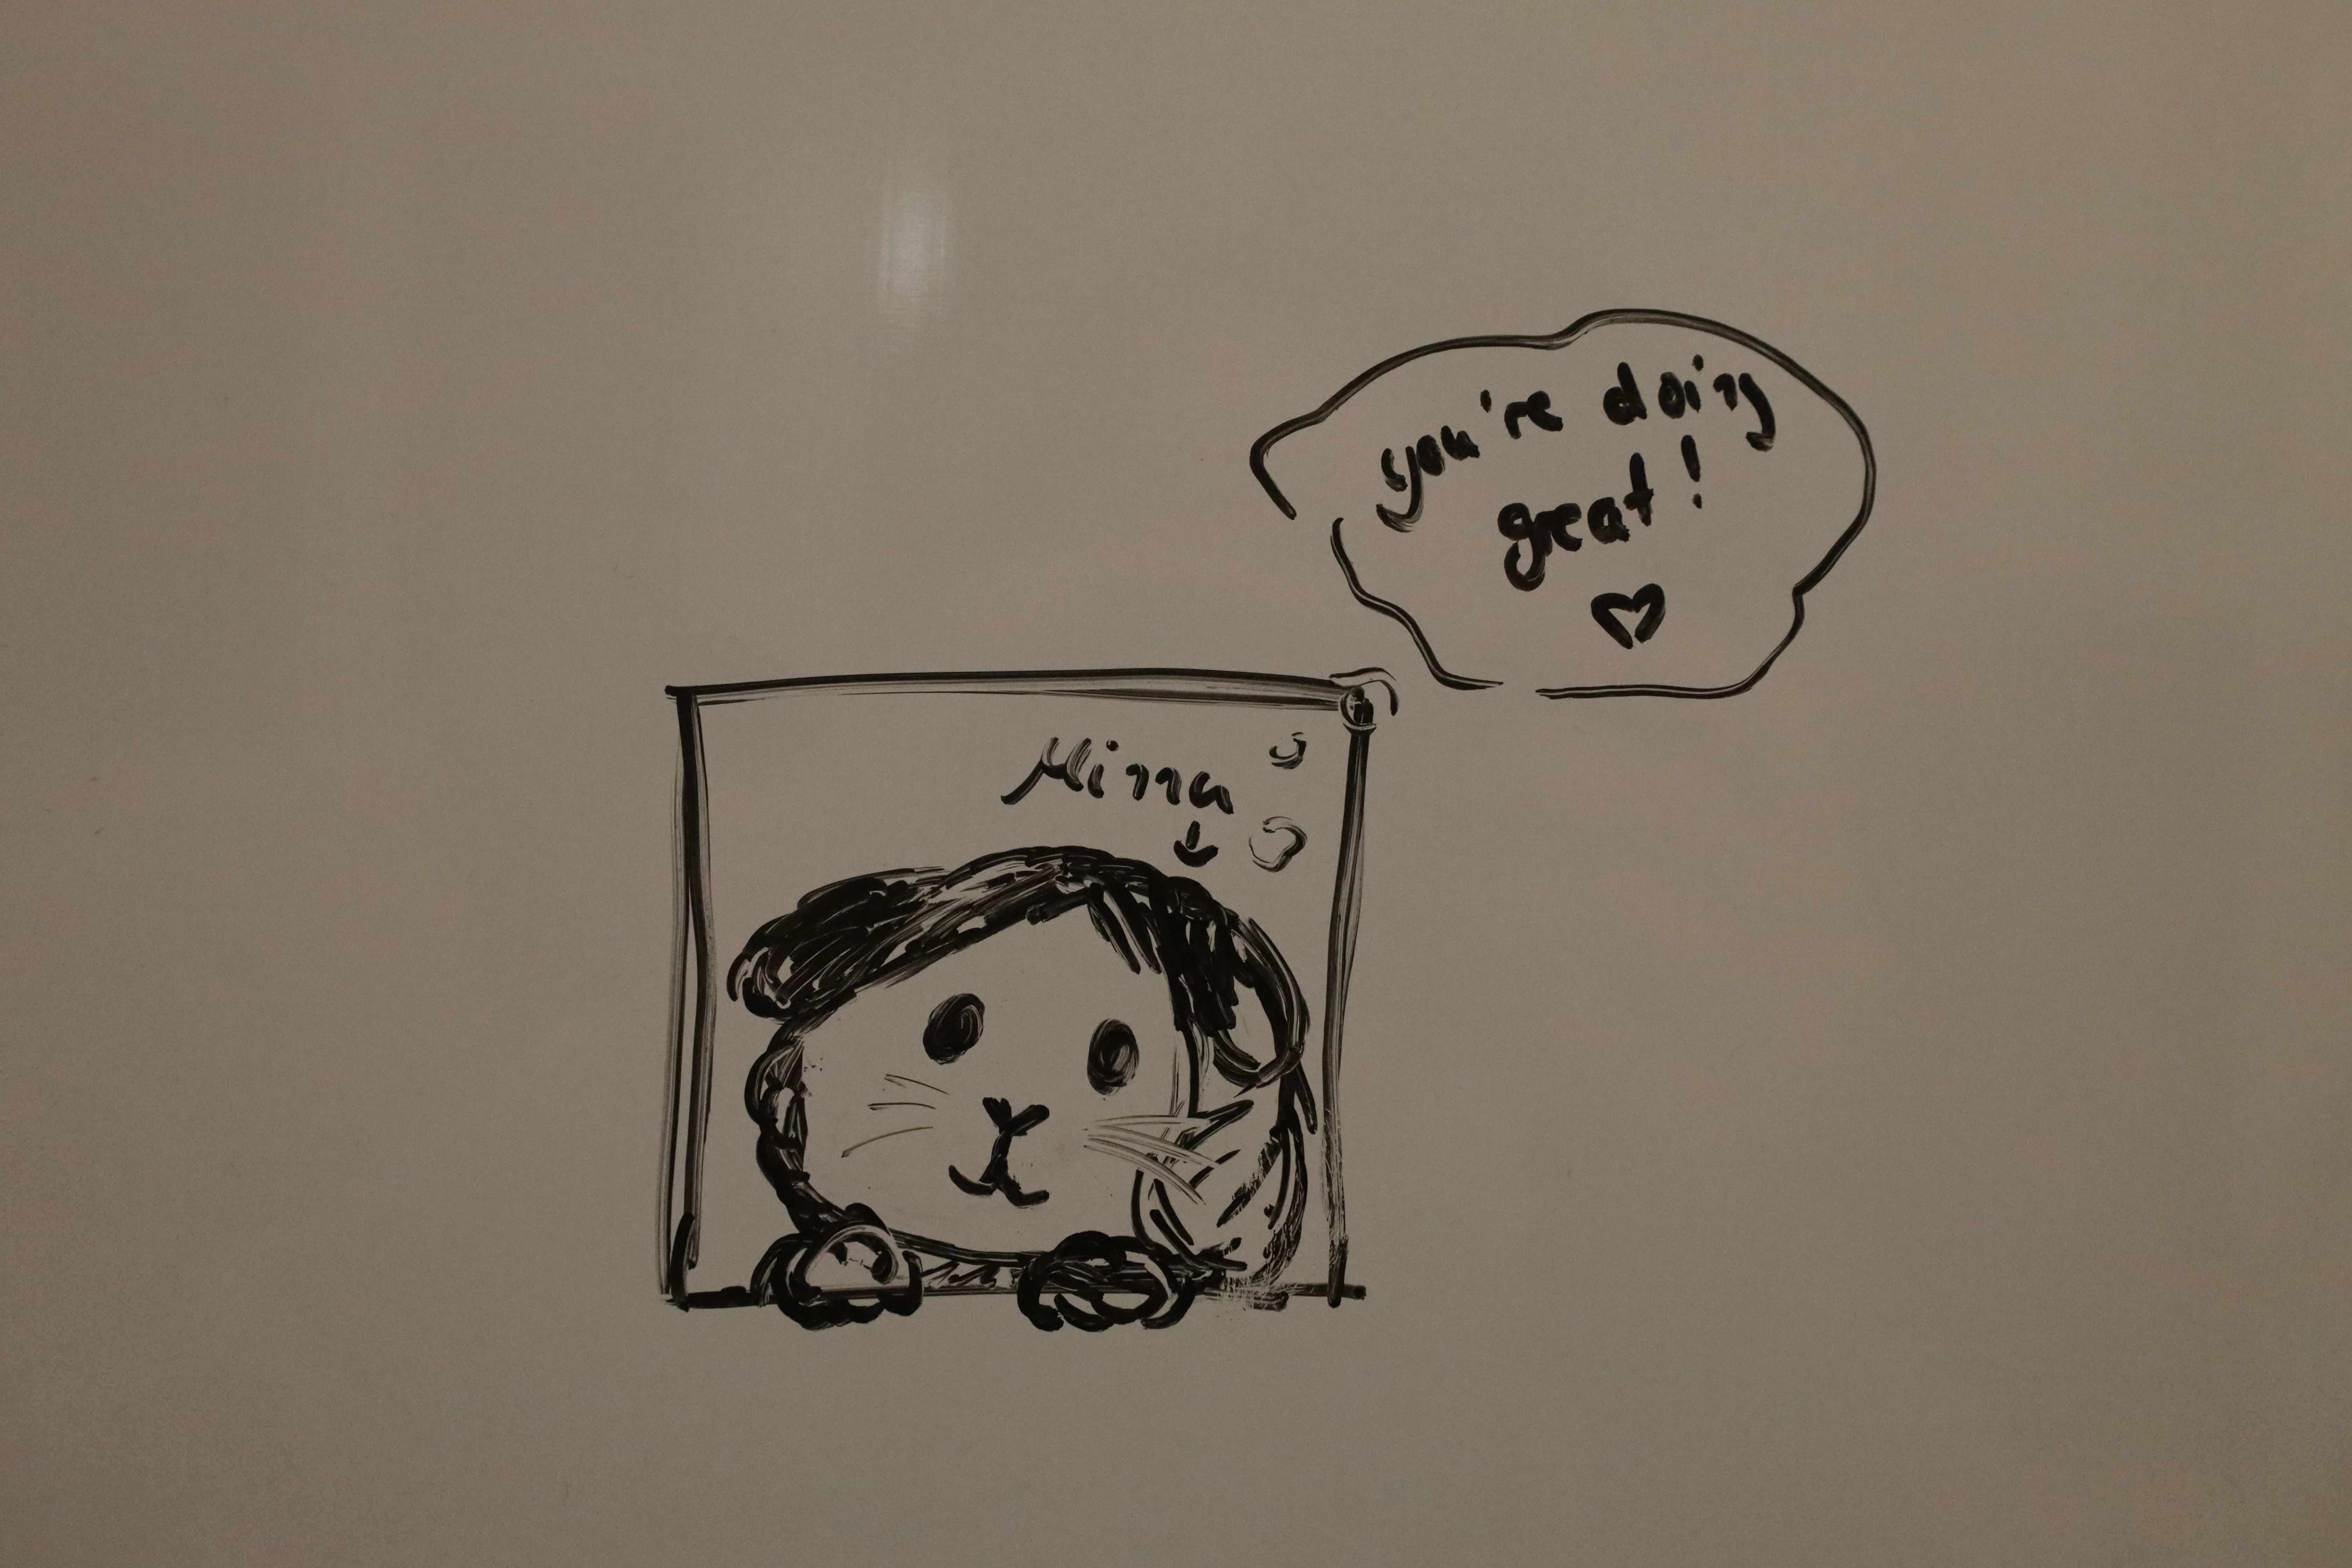 you're doing
great!
Minna